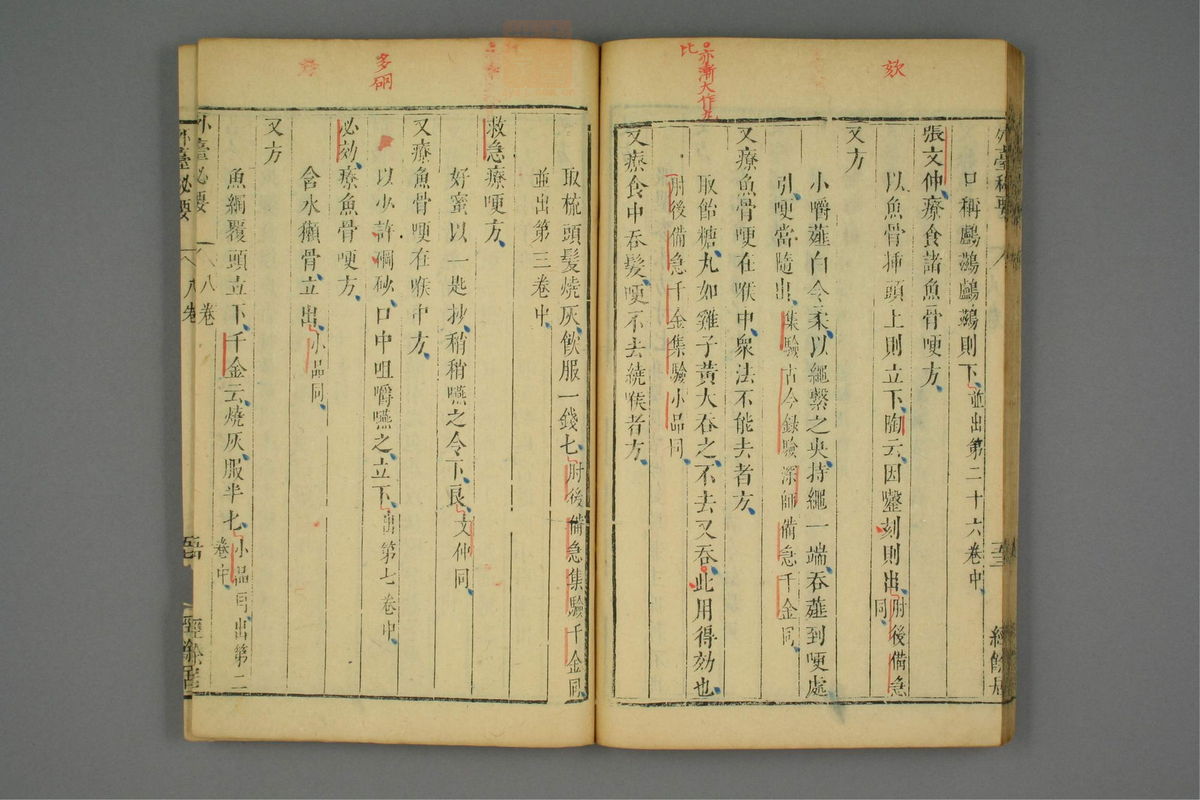 欬
口稱鸕鷀鸕鷀則下並出第二十六卷中
張文仲療食諸魚骨哽方
以魚骨插頭上則立下陶云因謦刻則出肘後備急
同
又方
小嚼薤白令柔以繩繫之央持繩一端吞薤到哽處
引哽當隨出集驗古今錄驗深師備急千金同
又療魚骨哽在喉中衆法不能去者方
取飴糖丸如雞子黃大吞之不去又吞此用得効也
肘後備急千金集驗小品同
又療食中吞髮哽不去繞喉者方
取梳頭髮燒灰飲服一錢匕肘後備急集驗千金同
並出第三卷中
救急療哽方
好蜜以一匙抄稍稍嚥之令下良文仲同
又療魚骨哽在喉中方
以少許硇砂口中咀嚼嚥之立下出第七卷中
必効療魚骨哽方
含水獺骨立出小品同
又方
魚網覆頭立下千金云燒灰服半匕小品同出第二
卷中
外臺秘要
八卷